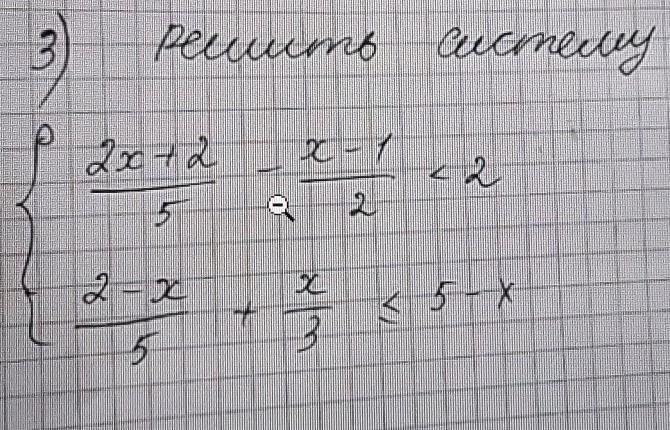 3) Решить систему
{ (2x+2)/5 - (x-1)/2 < 2
(2-x)/5 + x/3 ≤ 5-x